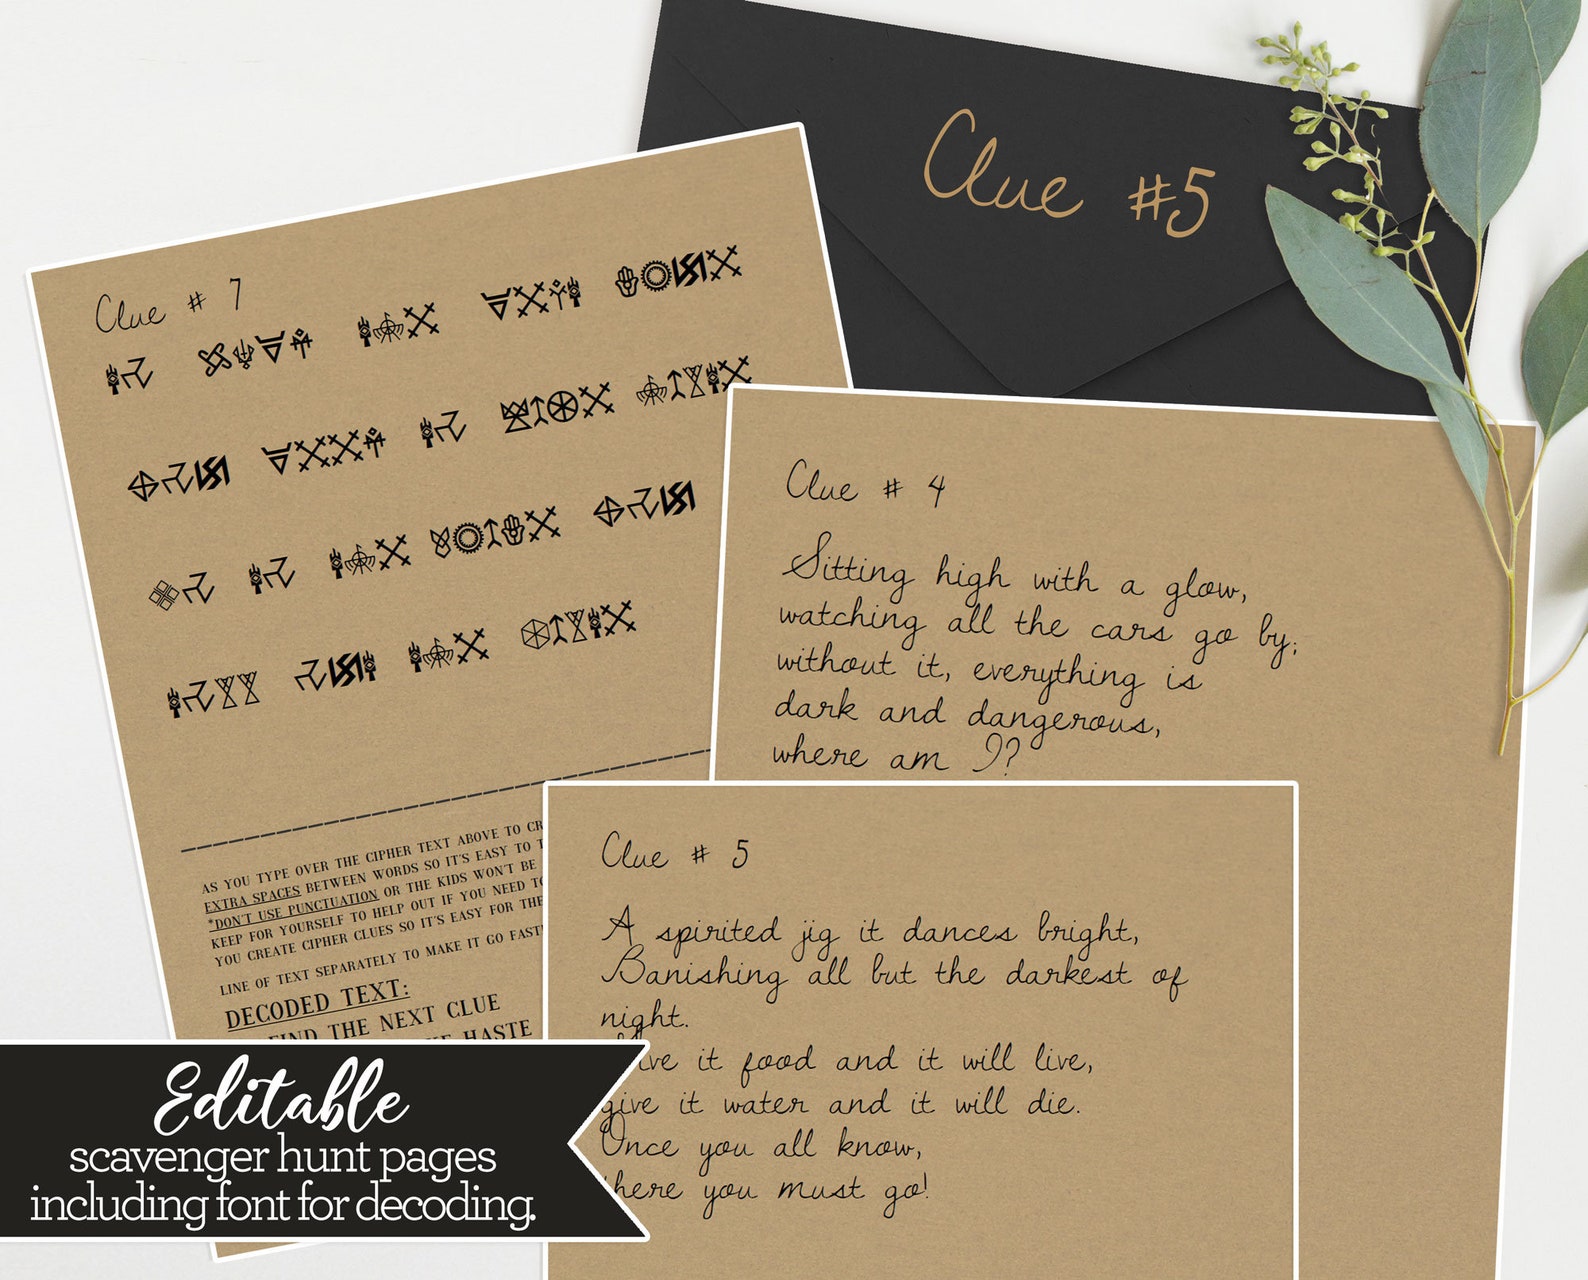 Clue #5
Clue # 7
Clue # 4
Sitting high with a glow,
watching all the cars go by;
without it, everything is
dark and dangerous,
where am I?
Clue # 5
A spirited jig it dances bright,
Banishing all but the darkest of
night.
it food and it will live,
give it water and it will die.
Once you all know,
there you must go!
AS YOU TYPE OVER THE CIPHER TEXT ABOVE TO
EXTRA SPACES BETWEEN WORDS SO IT'S EASY TO
*DON'T USE PUNCTUATION OR THE KIDS WON'T BE
KEEP FOR YOURSELF TO HELP OUT IF YOU NEED
YOU CREATE CIPHER CLUES SO IT'S EASY FOR THE
LINE OF TEXT SEPARATELY TO MAKE IT GO
DECODED TEXT:
FIND THE NEXT CLUE
HASTE
Editable
scavenger hunt pages
including font for decoding.